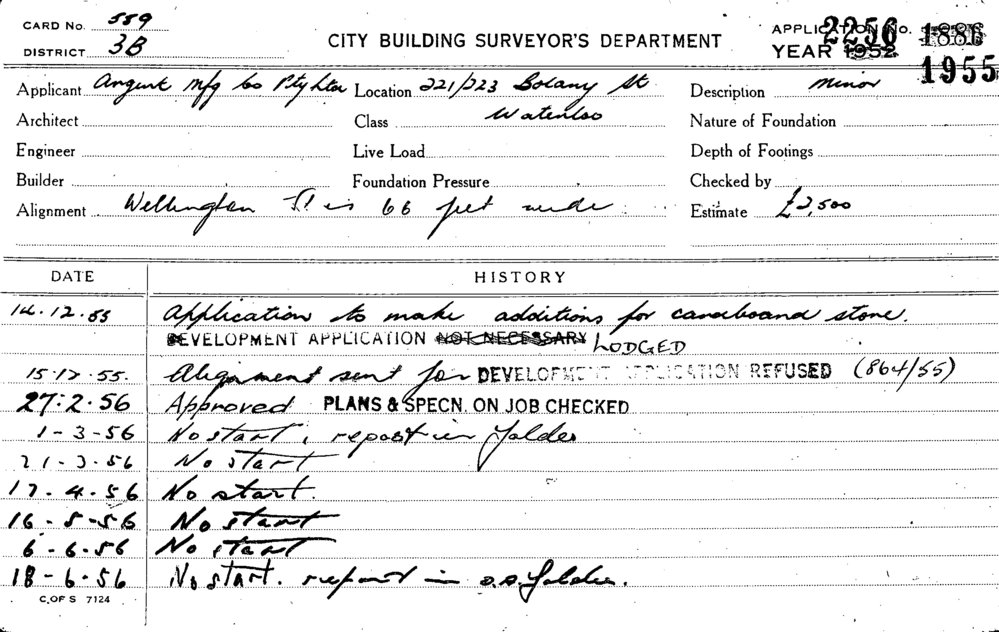 CARD No. 559
DISTRICT 3B
CITY BUILDING SURVEYOR'S DEPARTMENT
APPLICATION No. 2256 1886
YEAR 1952 1955
Applicant Mfg Co Pty Ltd Location 221/223 Botany St Description Minor
Architect Class Waterloo Nature of Foundation
Engineer Live Load Depth of Footings
Builder Foundation Pressure Checked by
Alignment Wellington St is 66 feet wide Estimate £2,500
DATE HISTORY
14.12.55 Application to make additions for cardboard store.
DEVELOPMENT APPLICATION NOT NECESSARY LODGED
15.12.55. Alignment sent for DEVELOPMENT APPLICATION REFUSED (864/55)
27.2.56 Approved PLANS & SPECN. ON JOB CHECKED
1-3-56 No start, report in folder
21.3.56 No start
17.4.56 No start.
16-5-56 No start
6-6.56 No start
18-6.56 No start. report in D.A. folder.
C. OF S 7124